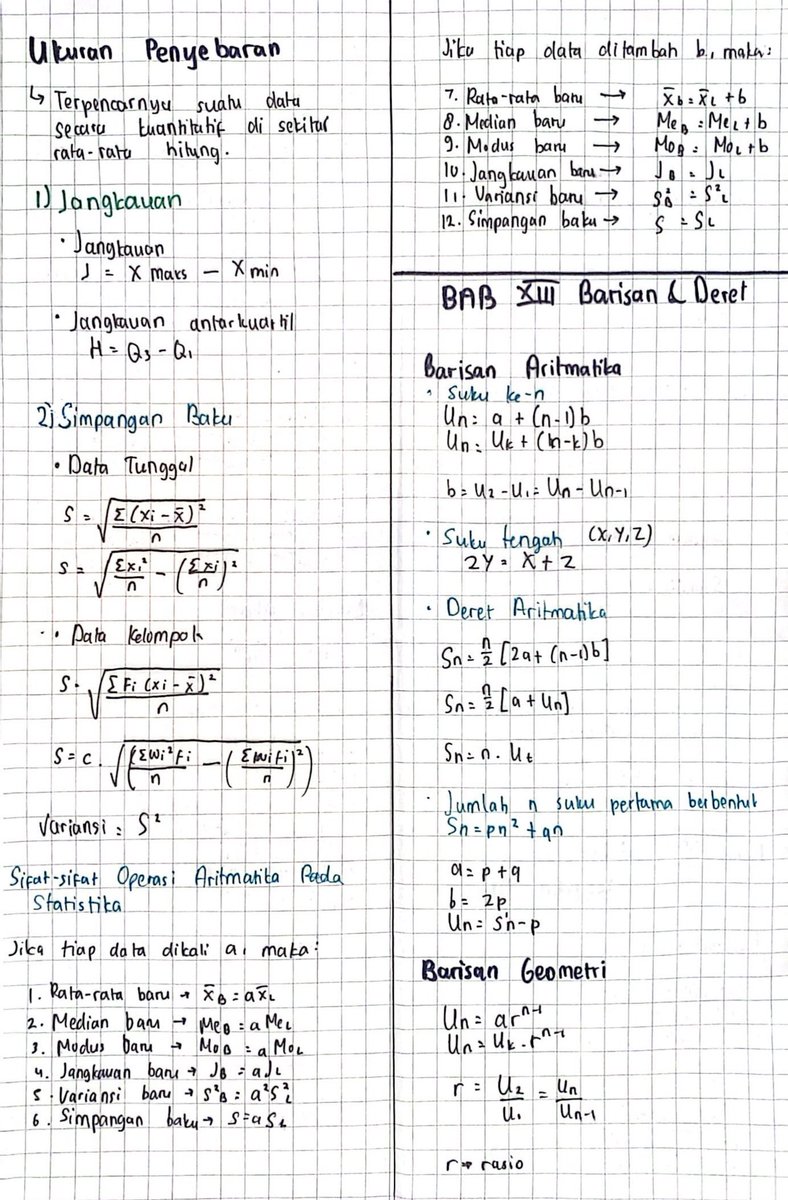 Ukuran Penyebaran
↳ Terpencarnya suatu data
secara kuantitatif di sekitar
rata-rata hitung.
1) Jangkauan
• Jangkauan
J = X maks – X min
• Jangkauan antarkuartil
H = Q₃ – Q₁
2) Simpangan Baku
• Data Tunggal
S = √(Σ(xi – x̄)²/n)
S = √(Σxi²/n – (Σxi/n)²)
• Data Kelompok
S = √(ΣFi (xi – x̄)²/n)
S = c . √((Σwi²fi/n – (Σwifi/n)²))
Variansi : S²
Sifat-sifat Operasi Aritmatika Pada
Statistika
Jika tiap data dikali a, maka:
1. Rata-rata baru → x̄B = ax̄L
2. Median baru → MeB = a MeL
3. Modus baru → MoB = a MoL
4. Jangkauan baru → JB = aJL
5. Variansi baru → S²B = a²S²L
6. Simpangan baku → S = a SL
Jika tiap data ditambah b, maka:
7. Rata-rata baru → x̄b = x̄L + b
8. Median baru → MeB = MeL + b
9. Modus baru → MoB = MoL + b
10. Jangkauan baru → JB = JL
11. Variansi baru → S²B = S²L
12. Simpangan baku → S = SL
BAB XIII Barisan & Deret
Barisan Aritmatika
• Suku ke-n
Un = a + (n-1)b
Un = Uk + (n-k)b
b = U2 - U1 = Un - Un-1
• Suku tengah (X,Y,Z)
2Y = X + Z
• Deret Aritmatika
Sn = n/2 [2a + (n-1)b]
Sn = n/2 [a + Un]
Sn = n . Ut
• Jumlah n suku pertama berbentuk
Sn = pn² + qn
a = p + q
b = 2p
Un = S'n - p
Barisan Geometri
Un = arⁿ⁻¹
Un = Uk . rⁿ⁻¹
r = U2/U1 = Un/Un-1
r → rasio